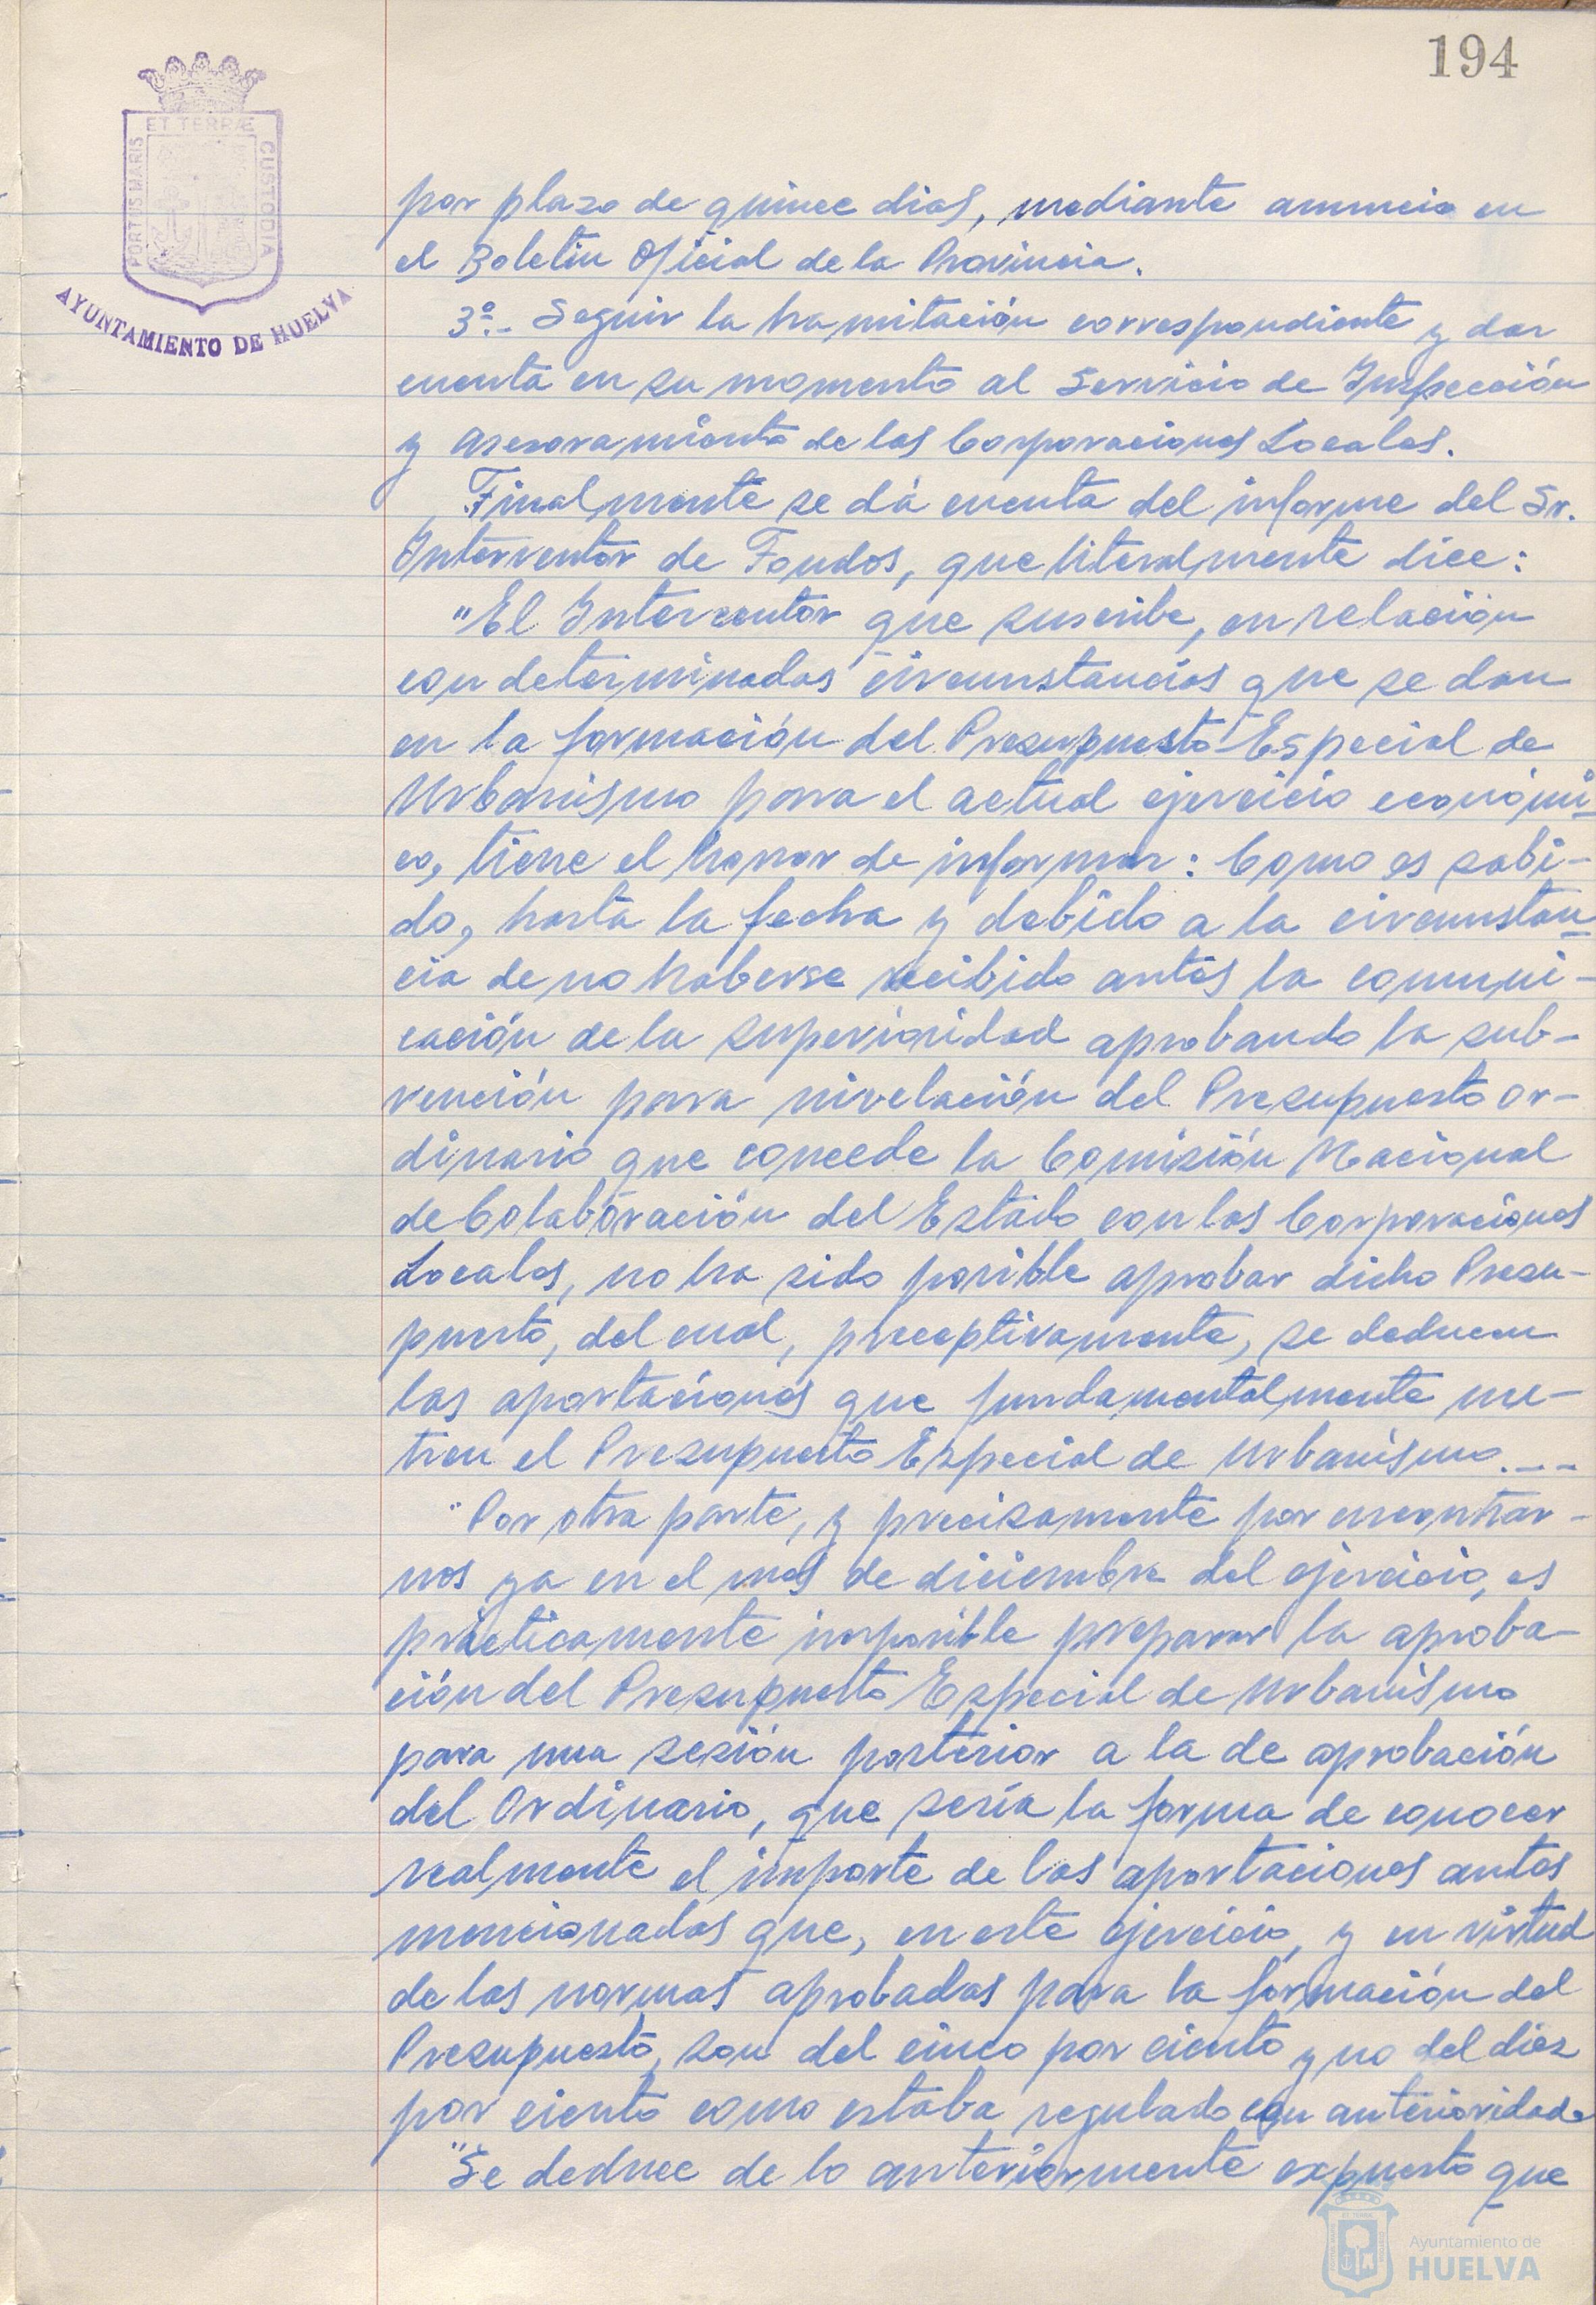 194
PORTUS MARIS ET TERRÆ CUSTODIA
AYUNTAMIENTO DE HUELVA
por plazo de quince dias, mediante anuncio en
el Boletin Oficial de la Provincia.
3º.- Seguir la tramitación correspondiente y dar
cuenta en su momento al Servicio de Inspección
y Asesoramiento de las Corporaciones Locales.
Finalmente se dá cuenta del informe del Sr.
Interventor de Fondos, que literalmente dice:
"El Interventor que suscribe, en relación
con determinadas circunstancias que se dan
en la formación del Presupuesto Especial de
Urbanismo para el actual ejercicio económi-
co, tiene el honor de informar: Como es sabi-
do, hasta la fecha y debido a la circunstan-
cia de no haberse recibido antes la comuni-
cación de la superioridad aprobando la sub-
vención para nivelación del Presupuesto Or-
dinario que concede la Comisión Nacional
de Colaboración del Estado con las Corporaciones
Locales, no ha sido posible aprobar dicho Presu-
puesto, del cual, preceptivamente, se deducen
las aportaciones que fundamentalmente nu-
tren el Presupuesto Especial de Urbanismo.---
"Por otra parte, y precisamente por encontrar-
nos ya en el mes de diciembre del ejercicio, es
prácticamente imposible preparar la aproba-
ción del Presupuesto Especial de Urbanismo
para una sesión posterior a la de aprobación
del Ordinario, que sería la forma de conocer
realmente el importe de las aportaciones antes
mencionadas que, en este ejercicio, y en virtud
de las normas aprobadas para la formación del
Presupuesto, son del cinco por ciento y no del diez
por ciento como estaba regulado con anterioridad.
"Se deduce de lo anteriormente expuesto que
Ayuntamiento de
HUELVA